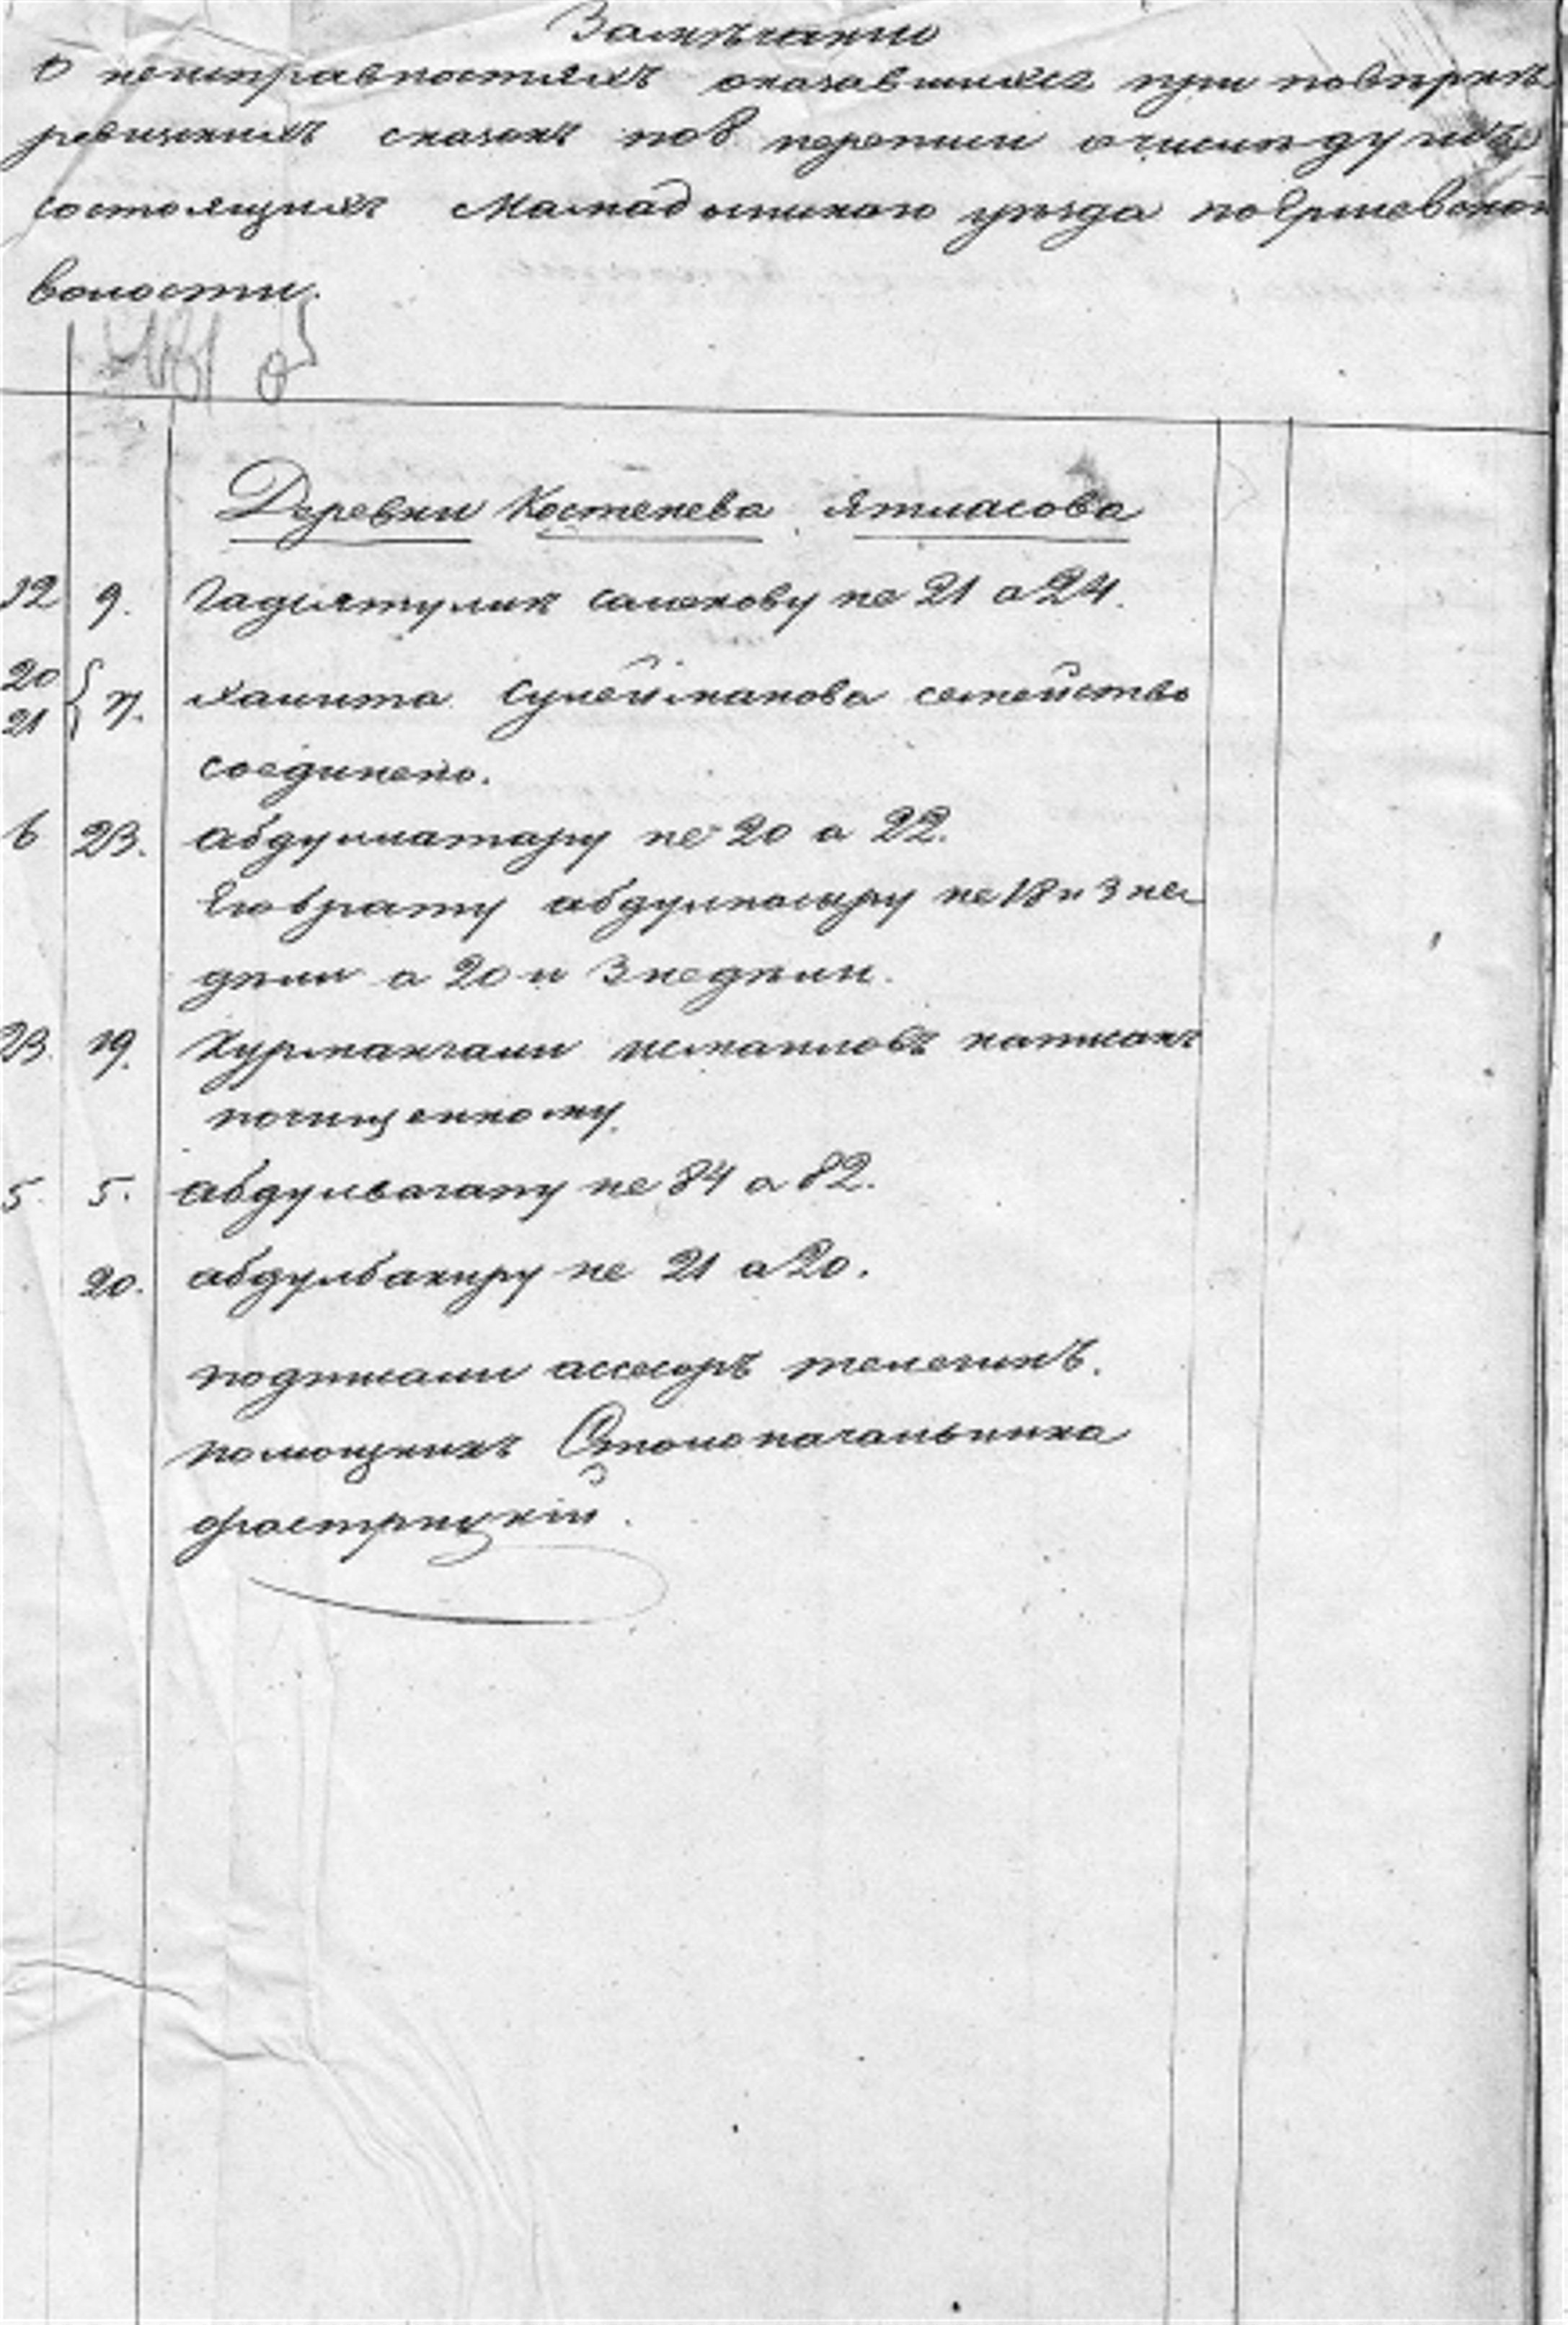 Замѣчаніе
О неисправностяхъ оказавшихся при повѣркѣ
ревизскихъ сказокъ по 8 переписи о числѣ душъ
состоящихъ Мамадышскаго уѣзда по Ершевской
волости.
Деревни Костенева Ятмасова
12 9. Гадиятулик салекову не 21 а 24.
20
21 } 7. халита Сулейманова семейство
соединено.
6 23. абдулматару не 20 а 22.
Его брату абдулнасыру не 18 и 3 не
дѣли а 20 и 3 недѣли.
23. 19. Хурмангали исмаиловъ написанъ
почищенному.
5. 5. абдулвагапу не 84 а 82.
20. абдулбакиру не 21 а 20.
подписали ассесоръ телегинъ.
помощникъ Столоначальника